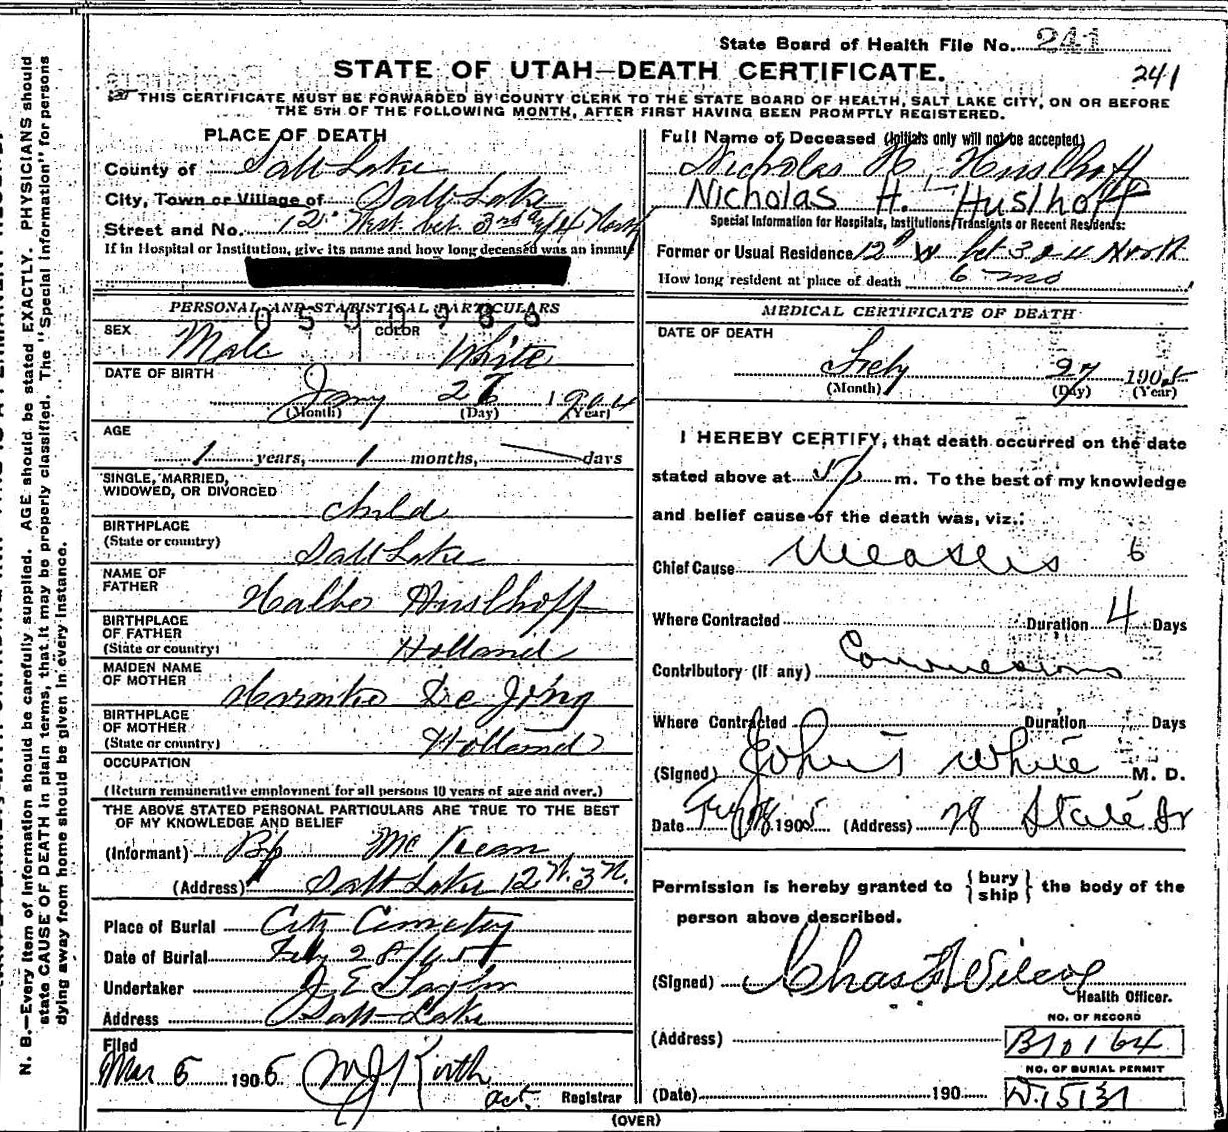 State Board of Health File No. 241
241
STATE OF UTAH—DEATH CERTIFICATE.
THIS CERTIFICATE MUST BE FORWARDED BY COUNTY CLERK TO THE STATE BOARD OF HEALTH, SALT LAKE CITY, ON OR BEFORE
THE 5TH OF THE FOLLOWING MONTH, AFTER FIRST HAVING BEEN PROMPTLY REGISTERED.
PLACE OF DEATH
County of Salt Lake
City, Town or Village of Salt Lake
Street and No. 12 West bet. 3rd & 4 North
If in Hospital or Institution, give its name and how long deceased was an inmate
PERSONAL AND STATISTICAL PARTICULARS
SEX Male
COLOR White
DATE OF BIRTH
Jany 1904
(Month) (Day) (Year)
AGE
1 years, 1 months, days
SINGLE, MARRIED,
WIDOWED, OR DIVORCED
child
BIRTHPLACE
(State or country)
Salt Lake
NAME OF
FATHER
Huslhoff
BIRTHPLACE
OF FATHER
(State or country)
Holland
MAIDEN NAME
OF MOTHER
De Jong
BIRTHPLACE
OF MOTHER
(State or country)
Holland
OCCUPATION
(Return remunerative employment for all persons 10 years of age and over.)
THE ABOVE STATED PERSONAL PARTICULARS ARE TRUE TO THE BEST
OF MY KNOWLEDGE AND BELIEF
(Informant) Bp McKean
(Address) Salt Lake 12 W. 3 N.
Place of Burial City Cemetery
Date of Burial Feby 28/05
Undertaker J E Taylor
Address Salt Lake
Filed
Mar 6 1905
act. Registrar
(OVER)
Full Name of Deceased (Initials only will not be accepted)
Nicholas H. Huslhoff
Nicholas H. Huslhoff
Special Information for Hospitals, Institutions, Transients or Recent Residents:
Former or Usual Residence 12 W bet 3 & 4 North
How long resident at place of death 6 mo
MEDICAL CERTIFICATE OF DEATH
DATE OF DEATH
Feby 27 1905
(Month) (Day) (Year)
I HEREBY CERTIFY, that death occurred on the date
stated above at 5 p m. To the best of my knowledge
and belief cause of the death was, viz.:
Chief Cause Measles 6
Where Contracted Duration 4 Days
Contributory (if any) Convulsions
Where Contracted Duration Days
(Signed) John T White M. D.
Date 1905 (Address) 78 State St
Permission is hereby granted to {bury ship} the body of the
person above described.
(Signed) Chas F Wilcox
Health Officer.
NO. OF RECORD
(Address) B10164
NO. OF BURIAL PERMIT
(Date) 190 D.15131
N. B.—Every item of information should be carefully supplied. AGE should be stated EXACTLY. PHYSICIANS should
state CAUSE OF DEATH in plain terms, that it may be properly classified. The "Special Information" for persons
dying away from home should be given in every instance.